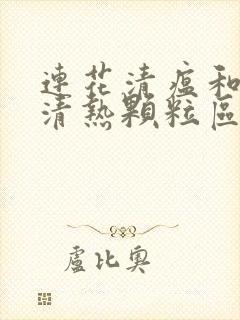 連花清瘟和
清熱顆粒區
盧比奧